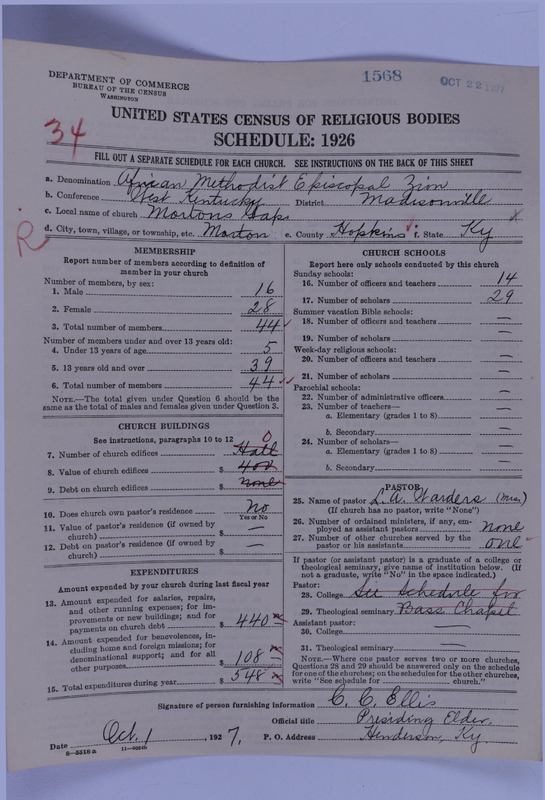 1568
OCT 22 1927
DEPARTMENT OF COMMERCE
BUREAU OF THE CENSUS
WASHINGTON
UNITED STATES CENSUS OF RELIGIOUS BODIES
SCHEDULE: 1926
34
FILL OUT A SEPARATE SCHEDULE FOR EACH CHURCH. SEE INSTRUCTIONS ON THE BACK OF THIS SHEET
a. Denomination African Methodist Episcopal Zion
b. Conference West Kentucky District Madisonville
c. Local name of church Mortons Gap
d. City, town, village, or township, etc. Morton e. County Hopkins f. State Ky
R
MEMBERSHIP
Report number of members according to definition of
member in your church
Number of members, by sex:
1. Male 16
2. Female 28
3. Total number of members 44
Number of members under and over 13 years old:
4. Under 13 years of age 5
5. 13 years old and over 39
6. Total number of members 44
NOTE.—The total given under Question 6 should be the
same as the total of males and females given under Question 3.
CHURCH BUILDINGS
See instructions, paragraphs 10 to 12 0
7. Number of church edifices Hall
8. Value of church edifices $ 400
9. Debt on church edifices $ none
10. Does church own pastor's residence? No
Yes or No
11. Value of pastor's residence (if owned by
church) $ —
12. Debt on pastor's residence (if owned by
church) $ —
EXPENDITURES
Amount expended by your church during last fiscal year
13. Amount expended for salaries, repairs,
and other running expenses; for im-
provements or new buildings; and for
payments on church debt $ 440
14. Amount expended for benevolences, in-
cluding home and foreign missions; for
denominational support; and for all
other purposes $ 108
15. Total expenditures during year $ 548
CHURCH SCHOOLS
Report here only schools conducted by this church
Sunday schools:
16. Number of officers and teachers 14
17. Number of scholars 29
Summer vacation Bible schools:
18. Number of officers and teachers —
19. Number of scholars —
Week-day religious schools:
20. Number of officers and teachers —
21. Number of scholars —
Parochial schools:
22. Number of administrative officers —
23. Number of teachers—
a. Elementary (grades 1 to 8) —
b. Secondary —
24. Number of scholars—
a. Elementary (grades 1 to 8) —
b. Secondary —
PASTOR
25. Name of pastor L. A. Warders (Miss)
(If church has no pastor, write "None")
26. Number of ordained ministers, if any, em-
ployed as assistant pastors none
27. Number of other churches served by the
pastor or his assistants one
If pastor (or assistant pastor) is a graduate of a college or
theological seminary, give name of institution below. (If
not a graduate, write "No" in the space indicated.)
Pastor:
28. College See Schedule for
29. Theological seminary Bass Chapel
Assistant pastor:
30. College —
31. Theological seminary —
NOTE.—Where one pastor serves two or more churches,
Questions 28 and 29 should be answered only on the schedule
for one of the churches; on the schedules for the other churches,
write "See schedule for ______ church."
Signature of person furnishing information C. C. Ellis
Official title Presiding Elder.
Date Oct. 1, 1927. P. O. Address Henderson, Ky.
8—5518 a